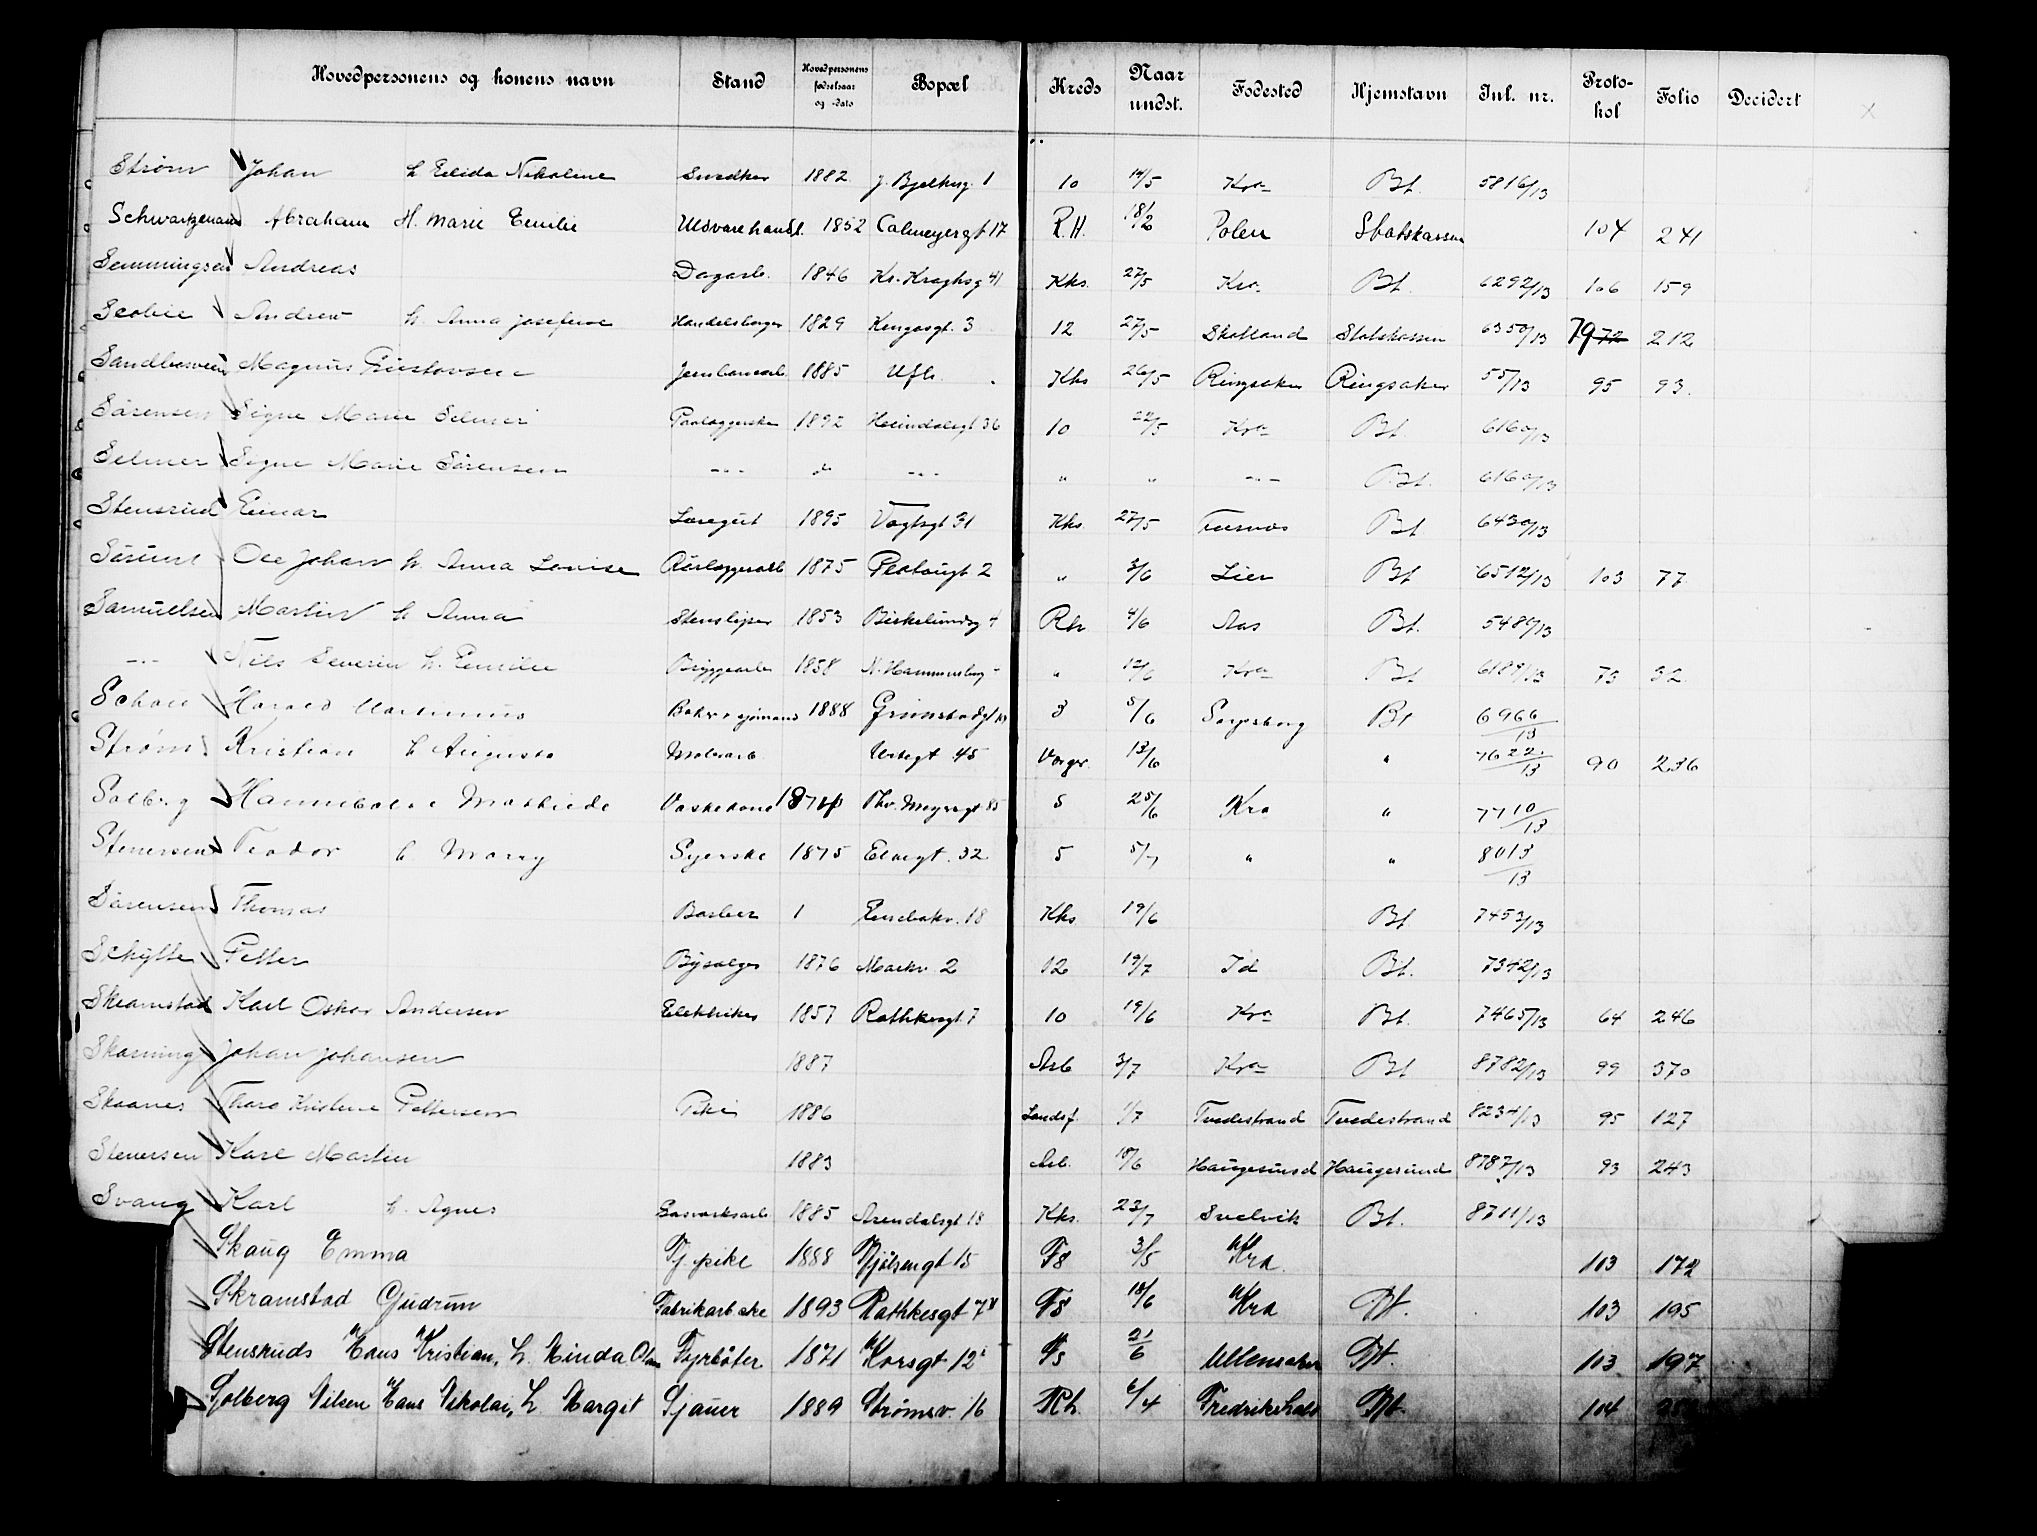 Hovedpersonens og konens navn Stand Hovedpersonens fødselsaar og -dato Bopæl Kreds Naar undst. Fødested Hjemstavn Inl. nr. Protokol Folio Decidert
Strøm Johan h Elida Nikoline Snedker 1882 J. Bjelkesg. 1 10 14/5 Kra Bt. 5816/13
Schwartzmann Abraham H. Marie Emilie Uldvarehandl. 1852 Calmeyergt 17 R.H. 18/2 Polen Statskassen 104 241
Semmingsen Andreas Dagarb. 1846 Kr. Kroghsg 41 Kks. 27/5 Kra Bt. 6292/13 106 159
Scobie Andrew h. Anna Josefine Handelsborger 1829 Kongosgt. 3 12 27/5 Skotland Statskassen 6350/13 79 72 212
Magnus Gustavsen Jernbanearb. 1885 Ufl. Kks 26/5 Ringsaker Ringsaker 55/13 95 93.
Sørensen Signe Marie Selmer Paalæggerske 1892 Heimdalsgt 36 10 22/5 Kra Bt. 6160/13
Selmer Signe Marie Sørensen -"- do -"- " " -"- Bt. 6160/13
Stensrud Einar Læregut 1895 Vogtsgt 31 Kks. 27/5 Bt 6430/13
Sørum Ole Johan h. Anna Lovise Rørlæggerarb 1875 2 " 3/6 Lier Bt 6512/13 103 77
Samuelsen Martin h Anna Stensliper 1853 Birkelundsg 4 Rh 4/6 Aas Bt. 5486/13
-"- Nils Severin h. Emilie Bryggearb 1858 N. Hammersbg " 12/6 Kra Bt 6189/13 73 32
Schou Harald Martinius Baker & sjømand 1888 Grimstadgt 3 5/6 Sarpsborg Bt 6966/13
Strøm Kristian h Augusta Malerarb. Vestgt 45 Vorger. 13/6 " 7622/13 90 236
Solberg Hannibaline Mathilde Vaskekone Thv. Meyersgt 5 25/6 Kra " 7710/13
Stenersen Teodor h Marry Syerske 1875 Elvegt. 32 5 5/7 " " 8013/13
Sørensen Thomas Barber 1 Enebakv. 18 Kks 19/6 Bt 7453/13
Schytte Petter Bysælger 1876 Markv 2 12 19/7 Id Bt. 7342/13
Skramstad Karl Oskar Andersen Elektriker 1857 Rathkesgt. 7 10 19/6 Kra Bt. 7465/13 64 246
Skarning Johan Johansen 1887 Arb 3/7 Kra Bt 8782/13 99 370
Skaanes Thara Kristine Pettersen Pike 1886 Landsf. 1/7 Tvedestrand Tvedestrand 8234/13 95 127
Stenersen Karl Martin 1883 Arb. 18/6 Haugesund Haugesund 8787/13 93 243
Svang Karl h. Agnes Gasværksarb 1885 Arendalsgt 18 Kks. 23/7 Svelvik Bt. 8711/13
Skaug Emma Tj. pike 1888 Hjølsengt 15 F8 31/5 Kra. 103 172
Skramstad Gudrun Fabrikarb.ske 1893 Rathkesgt 7 F8 18/6 Kra Bt. 103 195
Stensruds Hans Kristian, h. Minda Fyrbøter 1871 Korsgt 12 F8 21/6 Ullensaker Bt. 103 197
Solberg Nilsen Hans Nikolai, h Margit Sjauer 1889 Strømsv. 16 Rh. 6/4 Fredrikshald Bt. 104